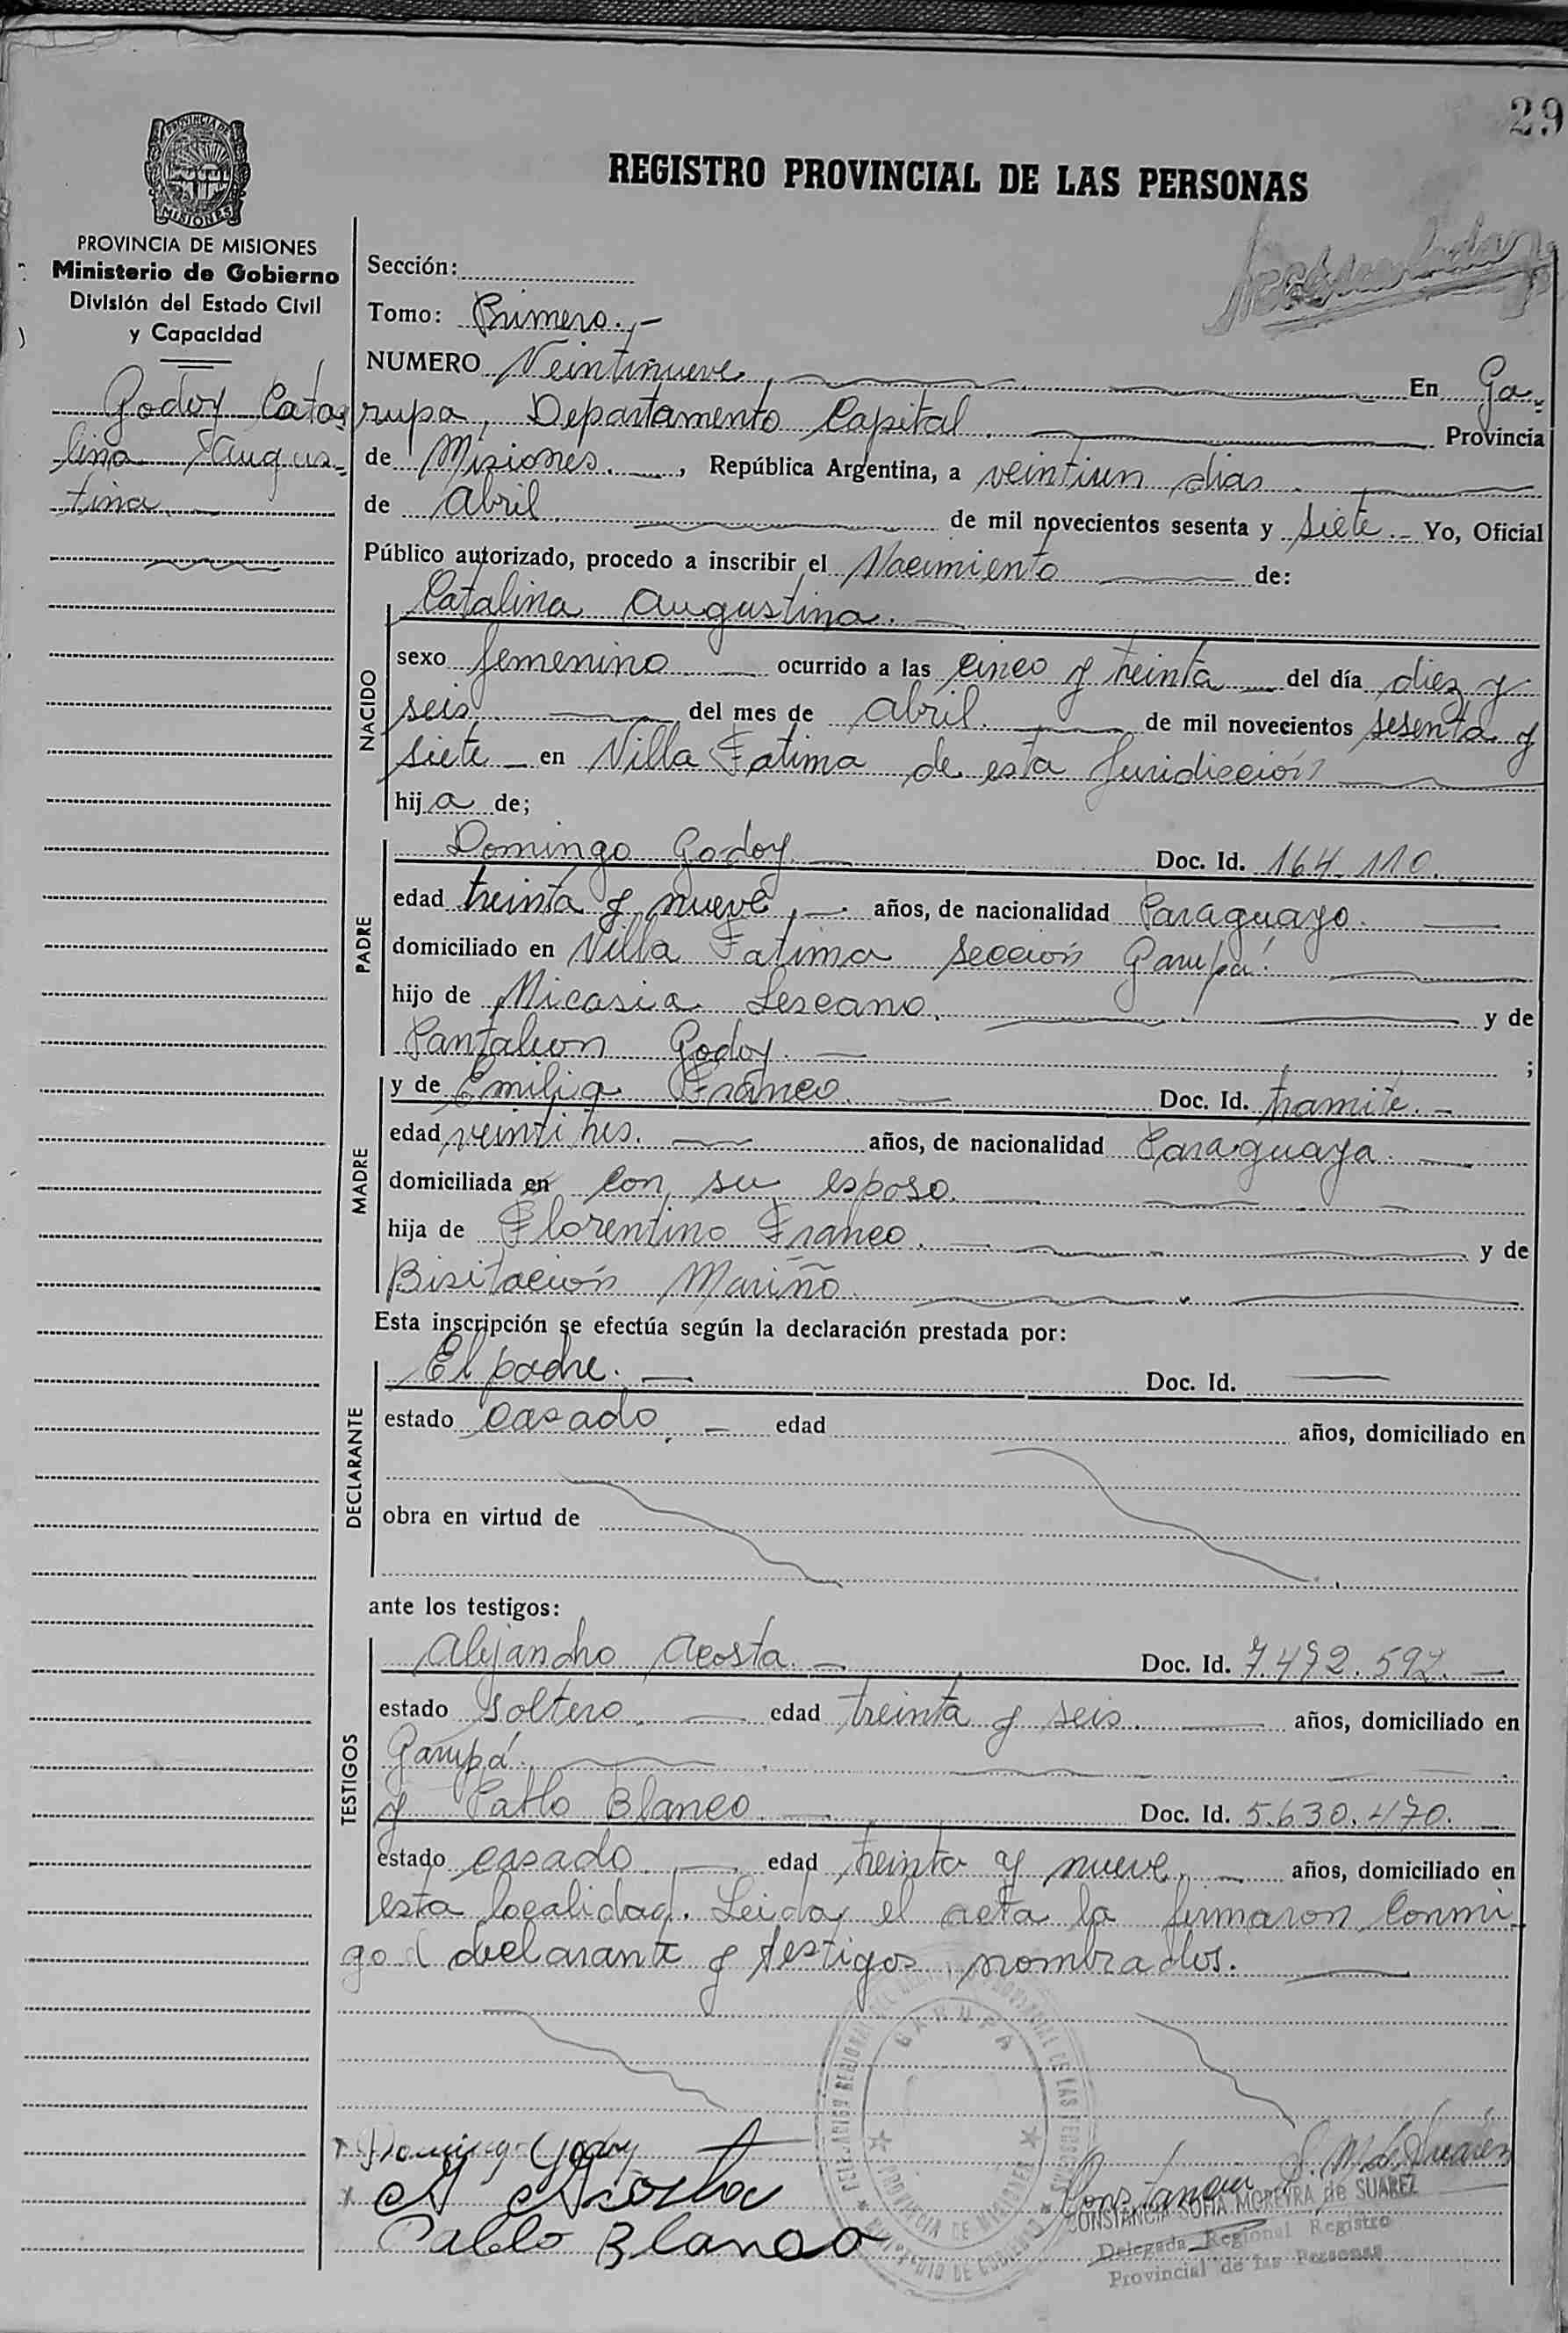 29
PROVINCIA DE MISIONES
REGISTRO PROVINCIAL DE LAS PERSONAS
PROVINCIA DE MISIONES
Ministerio de Gobierno
División del Estado Civil
y Capacidad
Godoy Cata-
lina Augus-
tina. —
Sección:
Tomo: Primero. —
NUMERO Veintinueve, En Ga-
rupa, Departamento Capital. Provincia
de Misiones. —, República Argentina, a veintiun dias.
de Abril. de mil novecientos sesenta y siete. — Yo, Oficial
Público autorizado, procedo a inscribir el Nacimiento de:
NACIDO
Catalina Augustina. —
sexo femenino — ocurrido a las cinco y treinta — del día diez y
seis, del mes de Abril. de mil novecientos sesenta y
siete — en Villa Fatima de esta Juridicción
hija de;
PADRE
Domingo Godoy. — Doc. Id. 164.110.
edad treinta y nueve, — años, de nacionalidad Paraguayo. —
domiciliado en Villa Fatima sección Garupá.
hijo de Micasia Lescano. y de
Pantaleon Godoy. — ;
MADRE
y de Emilia Franco. — Doc. Id. tramite. —
edad veinti tres. — años, de nacionalidad Paraguaya. —
domiciliada en con su esposo. —
hija de Florentino Franco. — y de
Bisitación Mariño.
Esta inscripción se efectúa según la declaración prestada por:
DECLARANTE
El padre. — Doc. Id. —
estado casado. — edad años, domiciliado en
obra en virtud de
ante los testigos:
TESTIGOS
Alejandro Acosta. — Doc. Id. 7.492.592. —
estado soltero. — edad treinta y seis. — años, domiciliado en
Garupá.
y Pablo Blanco. — Doc. Id. 5.630.470. —
estado casado. — edad treinta y nueve. — años, domiciliado en
esta localidad. Leida el acta la firmaron Conmi-
go declarante y testigos nombrados. —
GARUPA
PROVINCIA DE MISIONES
Domingo Godoy
A Acosta
Pablo Blanco
Constancia S. M. de Suarez
CONSTANCIA SOFIA MOREYRA de SUAREZ
Delegada Regional Registro
Provincial de las Personas